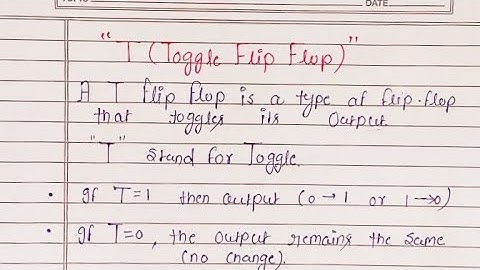 DATE
"T (Toggle Flip Flop)"
A T flip flop is a type of flip-flop
that toggles its output
"T" Stand for Toggle.
• If T=1 then output (0→1 or 1→0)
• If T=0, the output remains the same
(no change).